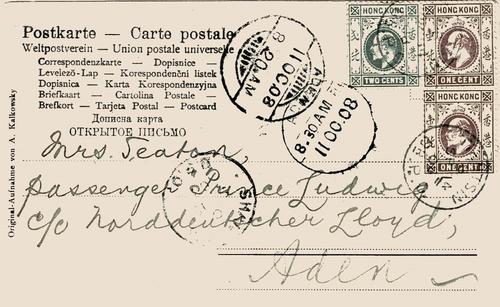 Postkarte — Carte postale
Weltpostverein — Union postale universelle
Correspondenzkarte — Dopisnice
Levelező-Lap — Korespondenční listek
Dopisnica — Karta Korespondencyjna
Briefkaart — Cartolina Postale
Brefkort — Tarjeta Postal — Postcard
Дописна карта
ОТКРЫТОЕ ПИСЬМО
Original-Aufnahme von A. Kalkowsky
8 20 AM
11 OC 08
ADEN
8.30 AM
11 OC 08
HONG KONG
TWO CENTS
HONG KONG
香港
ONE CENT
HONG KONG
香港
ONE CENT
SHAN
Mrs. Teaton,
passenger Prince Ludwig
c/o Norddeutscher Lloyd,
Aden